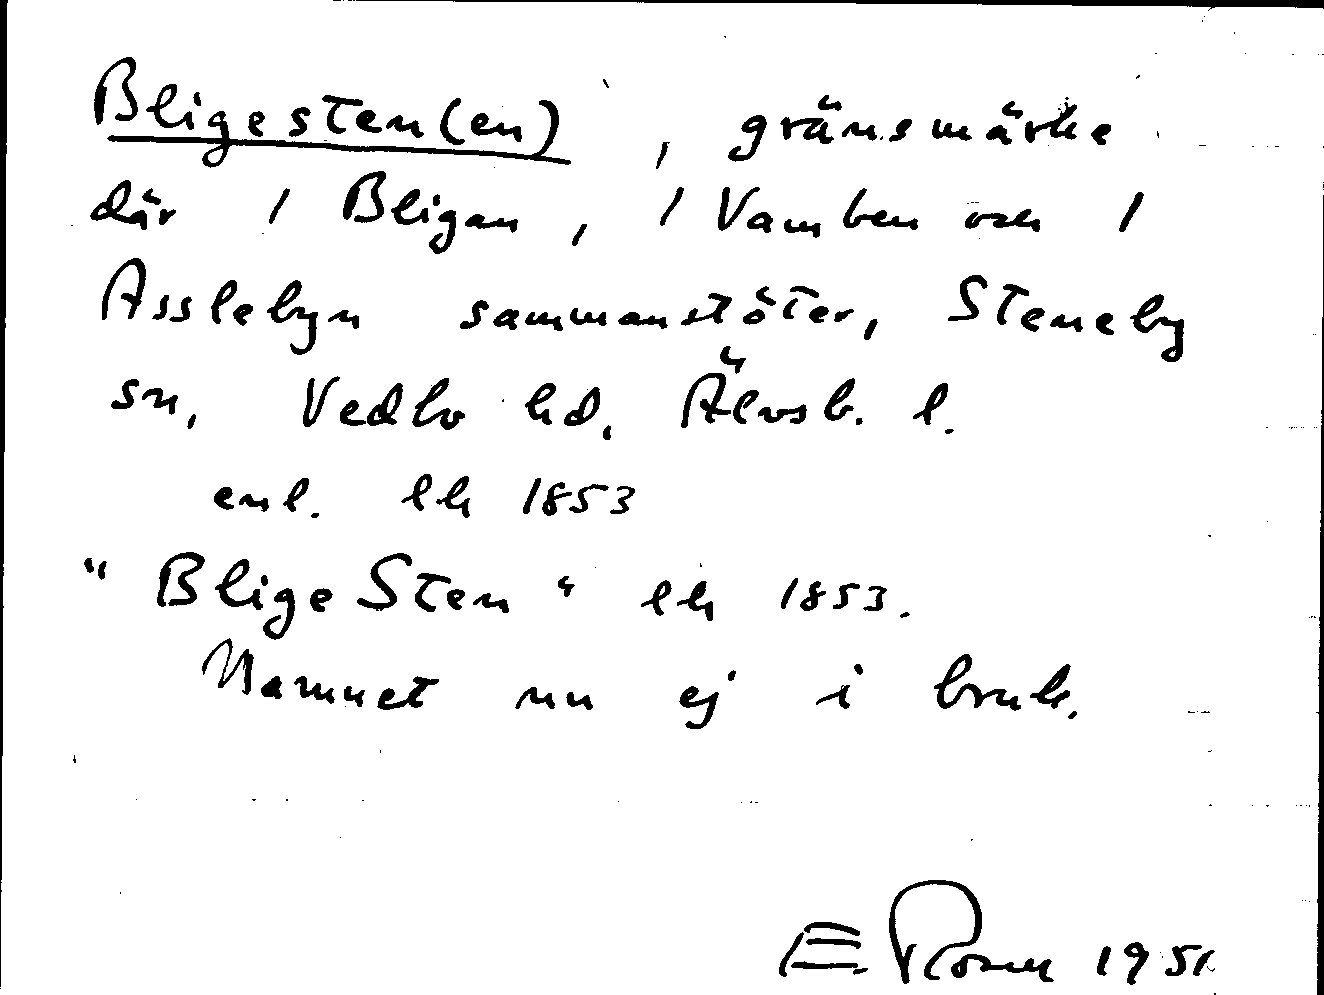 Bligesten(en), gränsmärke
där / Bligan, / Vamben och /
Asslebyn sammanstöter, Steneby
sn, Vedbo hd, Älvsb. l.
enl. lh 1853
"Blige Sten" lh 1853.
Namnet nu ej i bruk.
E. Rosell 1951